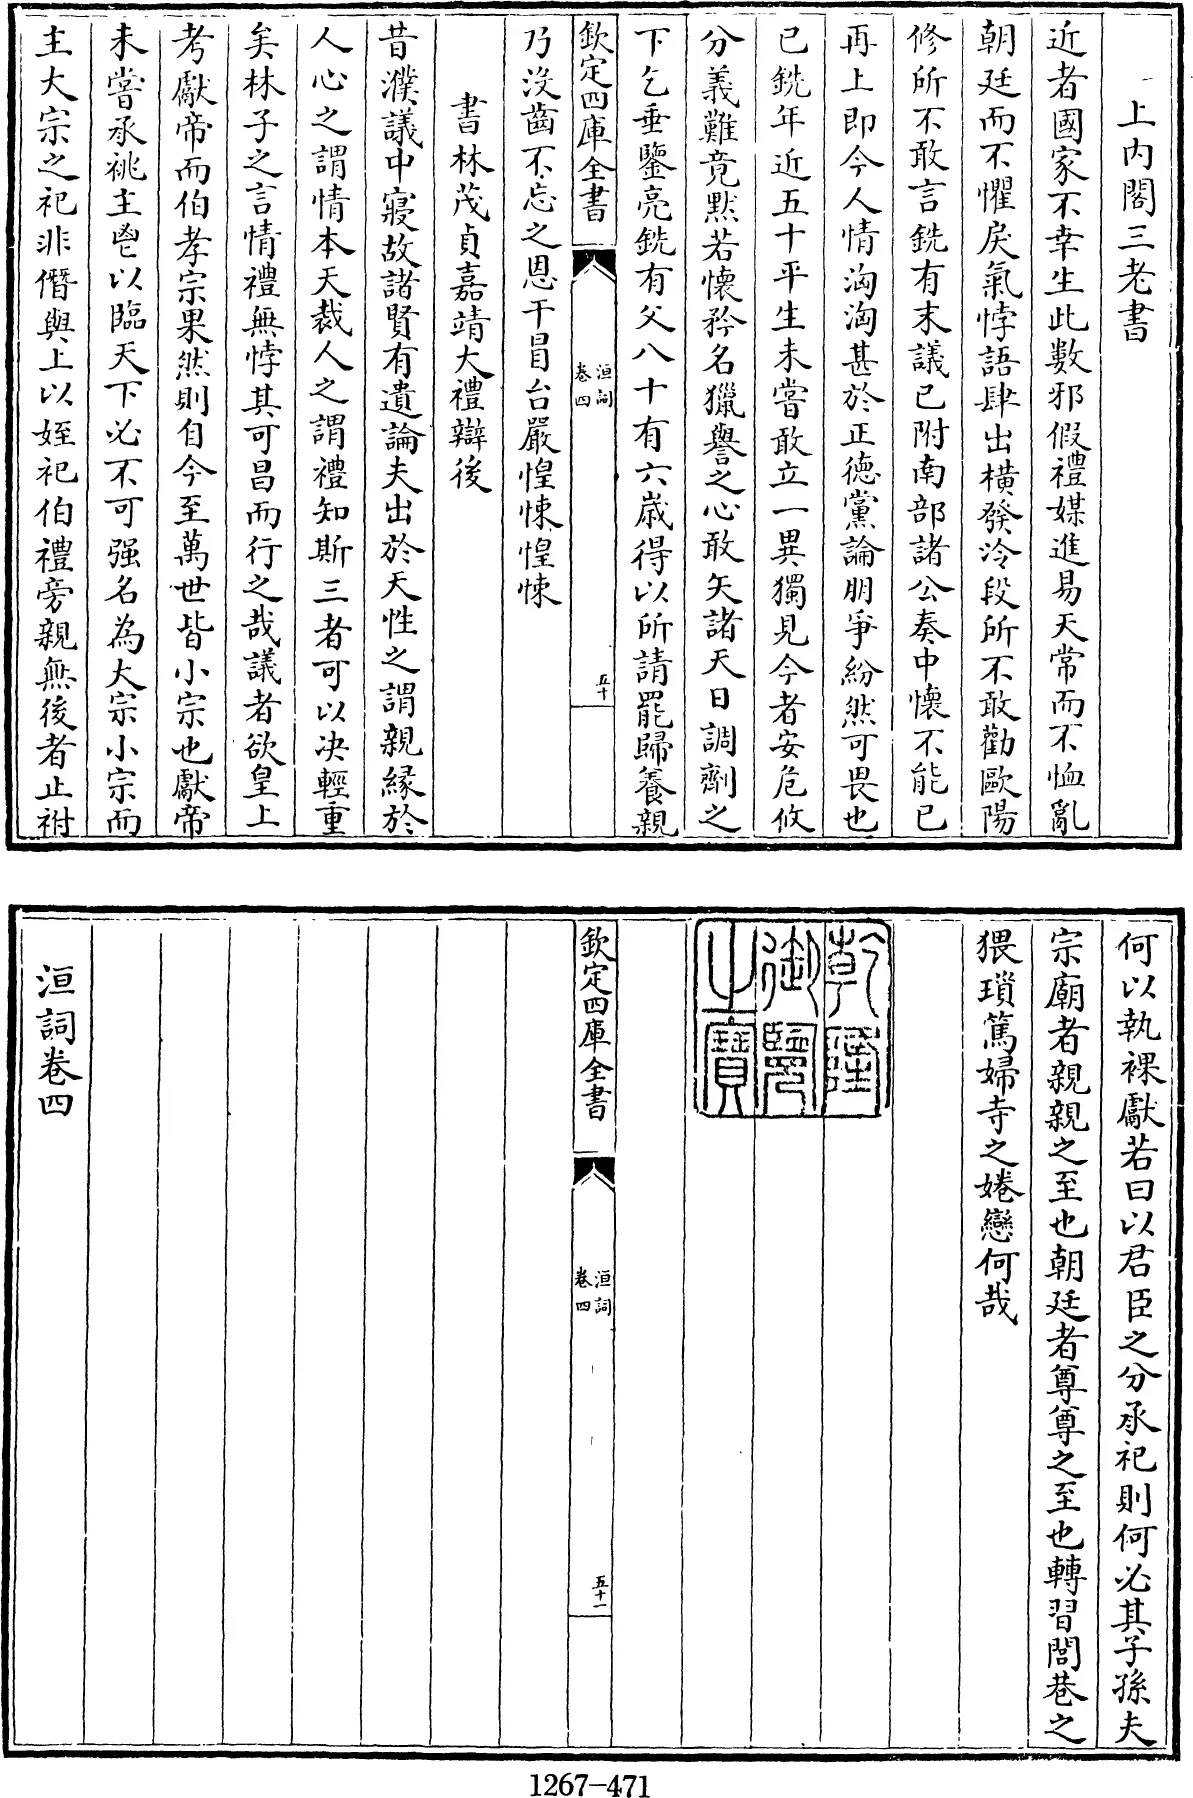 上内閣三老書
近者國家不幸生此數邪假禮媒進易天常而不恤亂
朝廷而不懼戾氣悖語肆出橫發冷段所不敢勸歐陽
修所不敢言銑有末議已附南部諸公奏中懷不能已
再上即今人情洶洶甚於正德黨論朋爭紛然可畏也
已銑年近五十平生未嘗敢立一異獨見今者安危攸
分義難竟默若懷矜名獵譽之心敢矢諸天日調劑之
下乞垂鑒亮銑有父八十有六歲得以所請罷歸養親
欽定四庫全書
洹詞
卷四
五十
乃沒齒不忘之恩干冒台嚴惶悚惶悚
書林茂貞嘉靖大禮辯後
昔濮議中寢故諸賢有遺論夫出於天性之謂親緣於
人心之謂情本天裁人之謂禮知斯三者可以決輕重
矣林子之言情禮無悖其可昌而行之哉議者欲皇上
考獻帝而伯孝宗果然則自今至萬世皆小宗也獻帝
未嘗承祧主鬯以臨天下必不可强名為大宗小宗而
主大宗之祀非僭與上以姪祀伯禮旁親無後者止祔
何以執祼獻若曰以君臣之分承祀則何必其子孫夫
宗廟者親親之至也朝廷者尊尊之至也轉習閭巷之
猥瑣篤婦寺之婘戀何哉
乾隆
御覽
之寶
欽定四庫全書
洹詞
卷四
五十一
洹詞卷四
1267-471